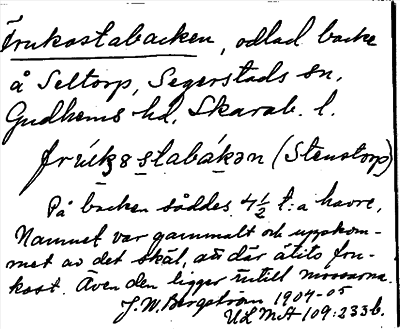 Frukostabacken, odlad backe
å Seltorp, Segerstads sn,
Gudhems hd, Skarab. l.
frúkostabákən (Stenstorp)
På backen såddes 4½ t:a havre.
Namnet var gammalt och uppkom-
met av det skäl, att där ätits fru-
kost. Även den ligger intill mossarna.
J. W. Bergström 1904-05
ULMA 109:233b.